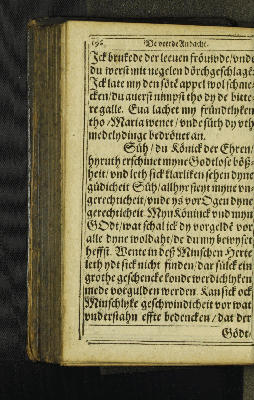 196. De veerde Andacht.
Ick brukede der leeuen fröuwde/vnde
du werst mit negelen dörchgeschlagē
Ick late my den söten appel wol schme-
cken/du auerst nimpst tho dy de bitte-
re galle. Eua lachet my fründtlyken
tho/Maria wenet/vnde süth dy yth
medelydinge bedröuet an.
Süh/du Könick der Ehren/
hyruth erschinet myne Godtlose böß-
heit/vnd leth sick klarliken sehen dyne
güdicheit Süh/allhyr steyt myne vn-
gerechticheit/vnde ys vor Ogen dyne
gerechticheit Myn Köninck vnd myn
GOdt/wat schal ick dy vorgeldē vor
alle dyne woldaht/de du my bewyset
heffst. Wente in deß Minschen Herte
leth ydt sick nicht finden/dar sülck ein
grothe geschencke konde werdichlyken
mede voegulden werden. Kan sick ock
Minschlyke geschwindicheit vor wat
vnderstahn effte bedencken/dat der
Gödt-